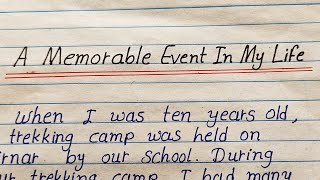 A Memorable Event In My Life
When I was ten years old,
trekking camp was held on
rnar by our school. During
ur trekking camp I had many